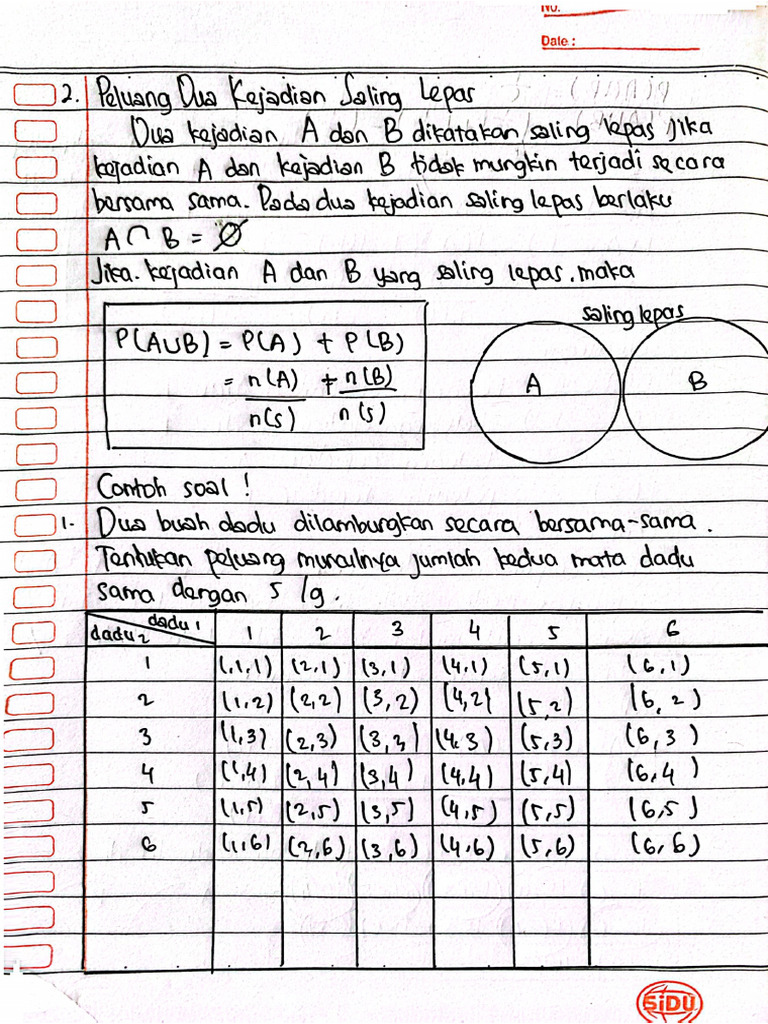 No.
Date :
2. Peluang Dua Kejadian Saling Lepas
Dua kejadian A dan B dikatakan saling lepas jika
kejadian A dan kejadian B tidak mungkin terjadi secara
bersama sama. Pada dua kejadian saling lepas berlaku
A ∩ B = ∅
Jika kejadian A dan B yang saling lepas. maka
saling lepas
P(A∪B) = P(A) + P(B)
= n(A)/n(s) + n(B)/n(s)
A B
Contoh soal !
1. Dua buah dadu dilambungkan secara bersama-sama.
Tentukan peluang munculnya jumlah kedua mata dadu
sama dengan 5 /9.
dadu 1
dadu 2 1 2 3 4 5 6
1 (1,1) (2,1) (3,1) (4,1) (5,1) (6,1)
2 (1,2) (2,2) (3,2) (4,2) (5,2) (6,2)
3 (1,3) (2,3) (3,3) (4,3) (5,3) (6,3)
4 (1,4) (2,4) (3,4) (4,4) (5,4) (6,4)
5 (1,5) (2,5) (3,5) (4,5) (5,5) (6,5)
6 (1,6) (2,6) (3,6) (4,6) (5,6) (6,6)
SiDU